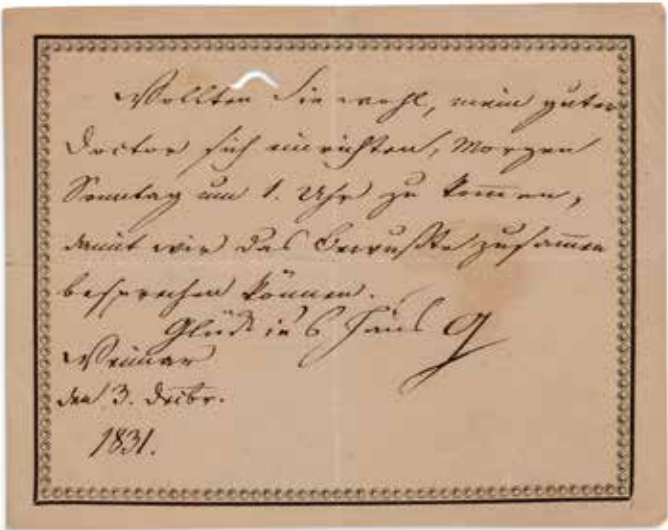 Wollten Sie wohl, mein guter
Doctor sich einrichten, Morgen
Sonntag um 1. Uhr zu kommen,
damit wir das Bewußte zusammen
besprechen können.
Glück ins Haus G
Weimar
den 3. Decbr.
1831.